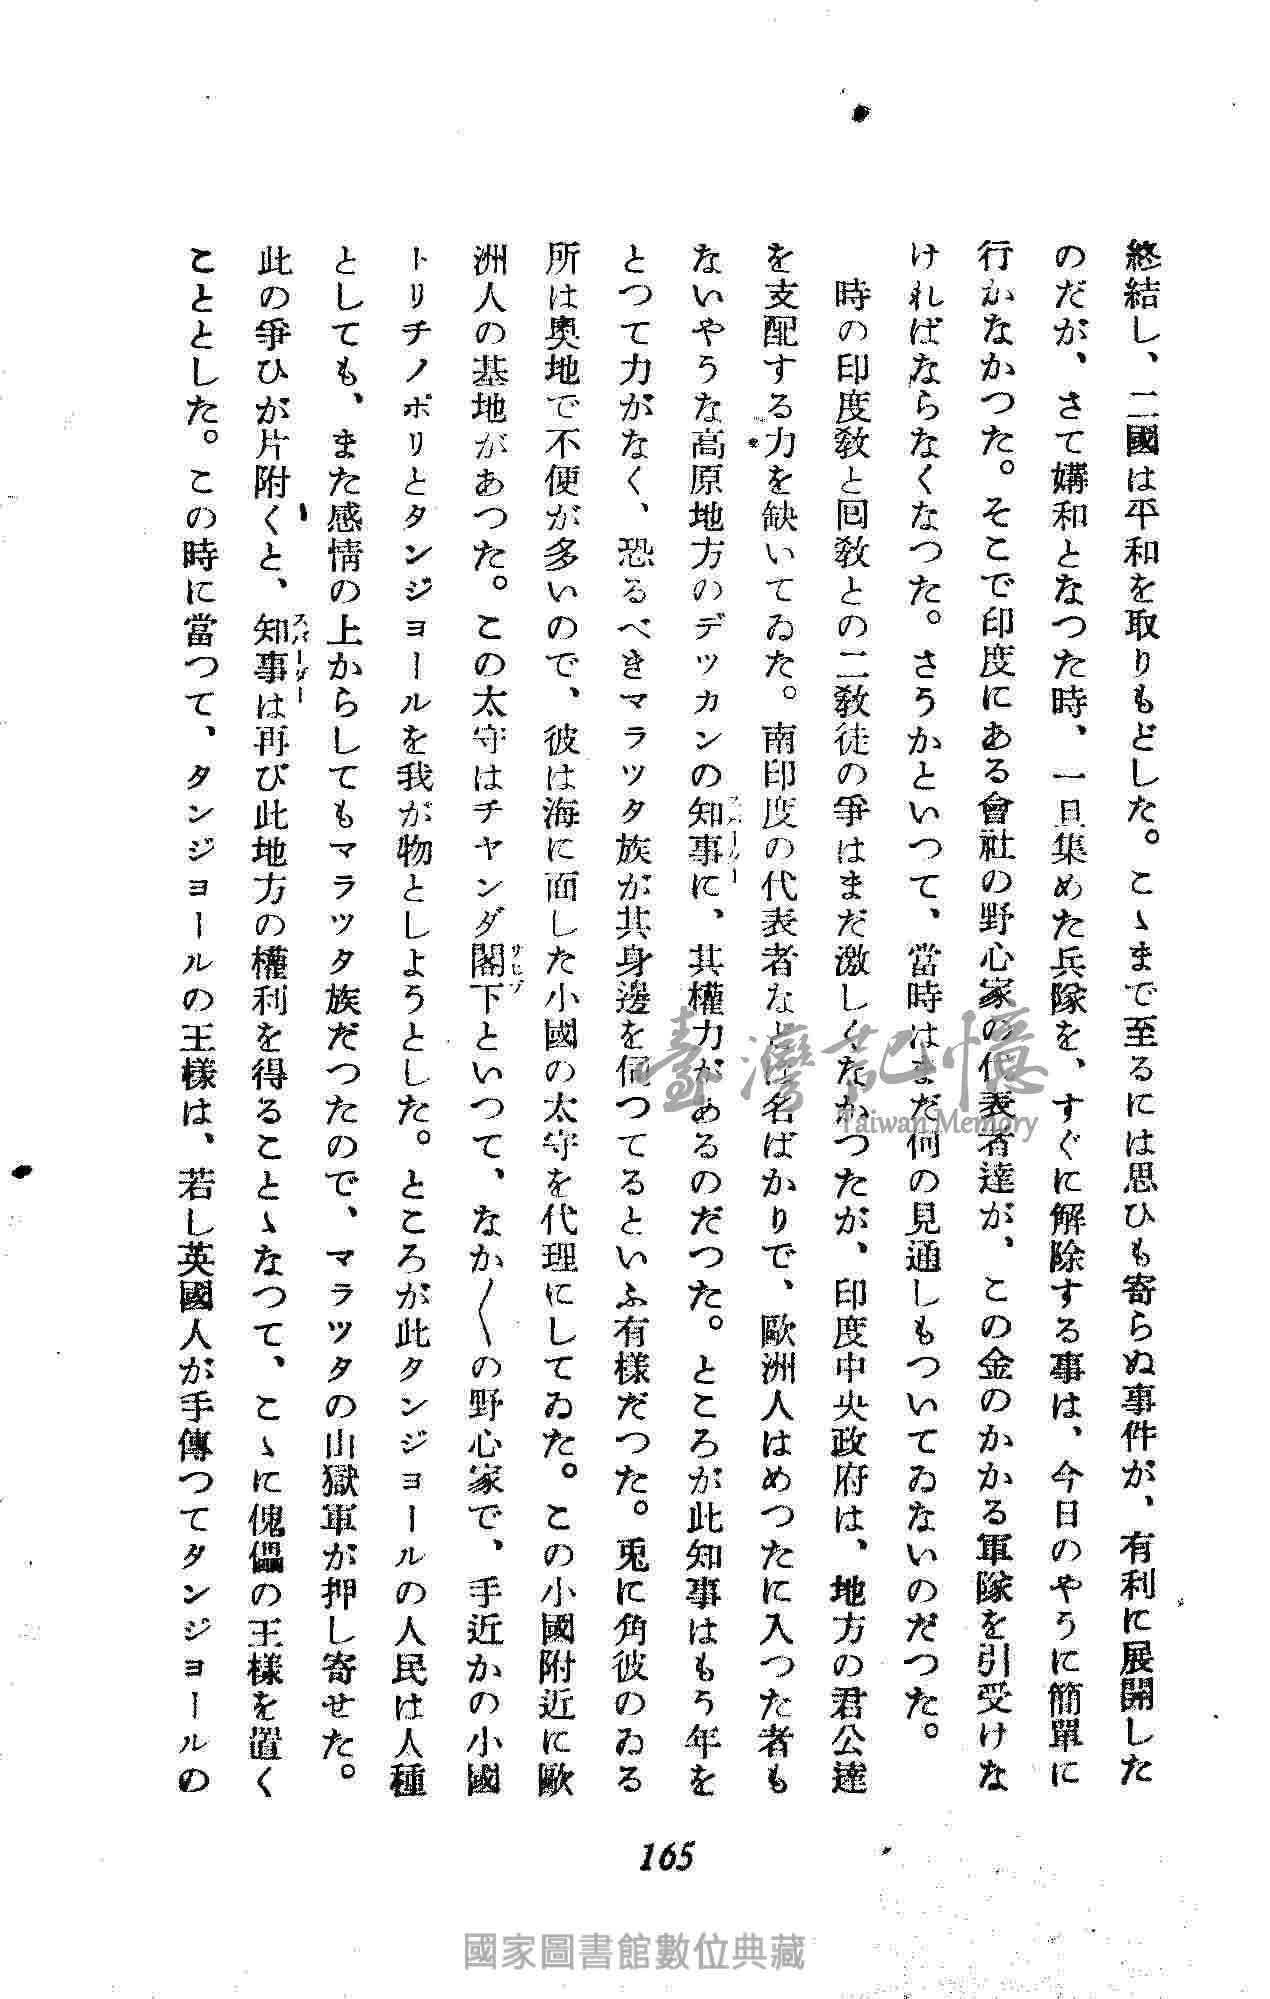 終結し、二國は平和を取りもどした。こゝまで至るには思ひも寄らぬ事件が、有利に展開した
のだが、さて媾和となつた時、一旦集めた兵隊を、すぐに解除する事は、今日のやうに簡單に
行かなかつた。そこで印度にある會社の野心家の代表者達が、この金のかかる軍隊を引受けな
ければならなくなつた。さうかといつて、當時はまだ何の見通しもついてゐないのだつた。
時の印度教と回教との二教徒の爭はまだ激しくたかつたが、印度中央政府は、地方の君公達
を支配する力を缺いてゐた。南印度の代表者などは名ばかりで、歐洲人はめつたに入つた者も
ないやうな高原地方のデッカンの知事に、其權力があるのだつた。ところが此知事はもう年を
とつて力がなく、恐るべきマラッタ族が其身邊を伺つてるといふ有樣だつた。兎に角彼のゐる
所は奧地で不便が多いので、彼は海に面した小國の太守を代理にしてゐた。この小國附近に歐
洲人の基地があつた。この太守はチヤンダ閣下サヒブといつて、なか〳〵の野心家で、手近かの小國
トリチノポリとタンジョールを我が物としようとした。ところが此タンジョールの人民は人種
としても、また感情の上からしてもマラッタ族だつたので、マラツタの山獄軍が押し寄せた。
此の爭ひが片附くと、知事スバーダーは再び此地方の權利を得ることゝなつて、こゝに傀儡の王樣を置く
こととした。この時に當つて、タンジョールの王樣は、若し英國人が手傳つてタンジョールの
165
臺灣記憶
Taiwan Memory
國家圖書館數位典藏